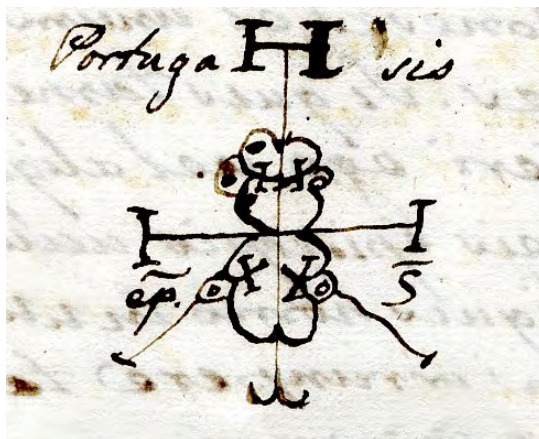 Portuga sis
ep. S